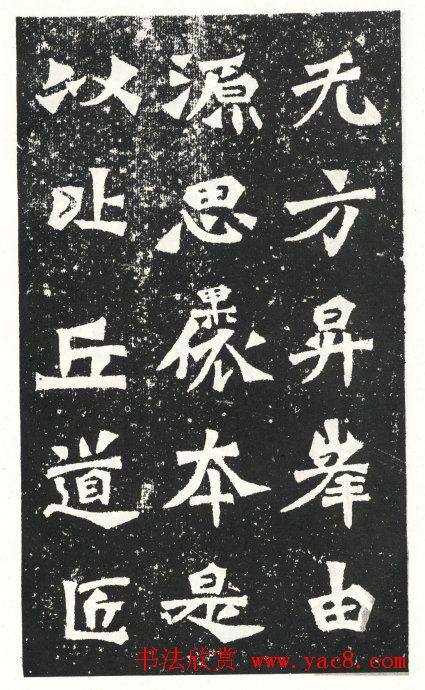 无方昇峯由
源思果依本是
以比丘道匠
书法欣赏 www.yac8.com